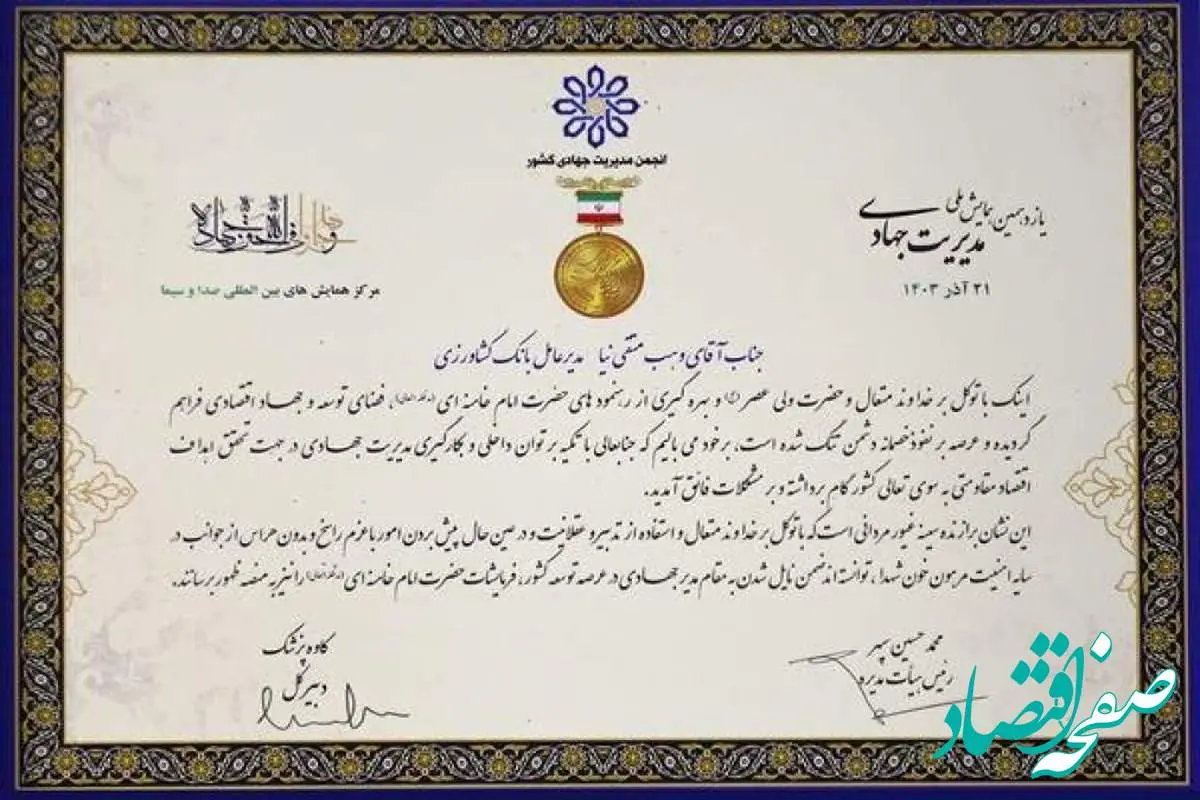 انجمن مدیریت جهادی کشور
یازدهمین همایش ملی
مدیریت جهادی
۲۱ آذر ۱۴۰۳
مرکز همایش های بین المللی صدا و سیما
جناب آقای وهب متقی نیا مدیرعامل بانک کشاورزی
اینک با توکل بر خداوند متعال و حضرت ولی عصر (عج) و بهره گیری از رهنمود های حضرت امام خامنه ای (مدظله العالی)، فضای توسعه و جهاد اقتصادی فراهم
گردیده و عرصه بر نفوذ خصمانه دشمن تنگ شده است، بر خود می بالیم که جنابعالی با تکیه بر توان داخلی و بکارگیری مدیریت جهادی در جهت تحقق اهداف
اقتصاد مقاومتی به سوی تعالی کشور گام برداشته و بر مشکلات فائق آمدید.
این نشان برازنده سینه غیور مردانی است که با توکل بر خداوند متعال و استفاده از تدبیر و عقلانیت و در عین حال پیش بردن امور با عزم راسخ و بدون هراس از جوانب در
سایه امنیت مرهون خون شهدا، توانسته اند ضمن نایل شدن به مقام مدیر جهادی در عرصه توسعه کشور، فرمایشات حضرت امام خامنه ای (مدظله العالی) را نیز به منصه ظهور برسانند.
محمد حسین سپهر
رئیس هیأت مدیره
کاوه پزشک
دبیر کل
صفحه اقتصاد